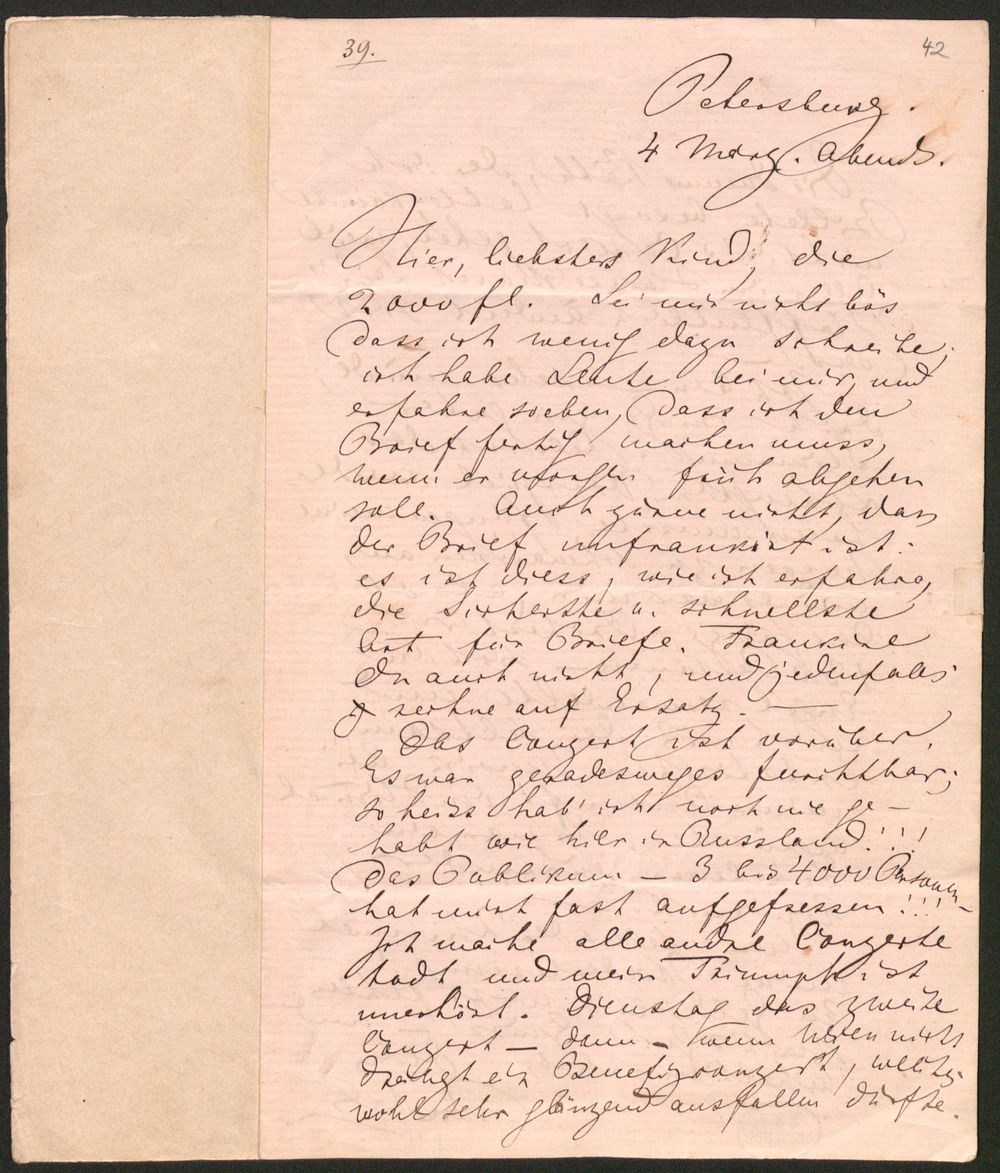 39.
42
Petersburg.
4 März. Abends.
Hier, liebstes Kind, die
2000 fl. Sei mir nicht bös
dass ich wenig dazu schreibe;
ich habe Leute bei mir, und
erfahre soeben, dass ich den
Brief fertig machen muss,
wenn er morgen früh abgehen
soll. Auch zürne nicht, dass
der Brief unfrankirt ist:
es ist diess, wie ich erfahre,
die sicherste u. schnellste
Art für Briefe. Frankire
Du auch nicht, und jedenfalls
rechne auf Ersatz. —
Das Conzert ist vorüber.
Es war geradesweges furchtbar;
so heiss hab' ich noch nie ge-
habt wie hier in Russland!!!
Das Publikum — 3 bis 4000 Personen —
hat mich fast aufgefressen!!!
Ich mache alle andre Conzerte
todt und mein Triumph ist
unerhört. Dienstag das zweite
Conzert — dann — wenn Wien nicht
drängt ein Benefizconzert, welches
wohl sehr glänzend ausfallen dürfte.